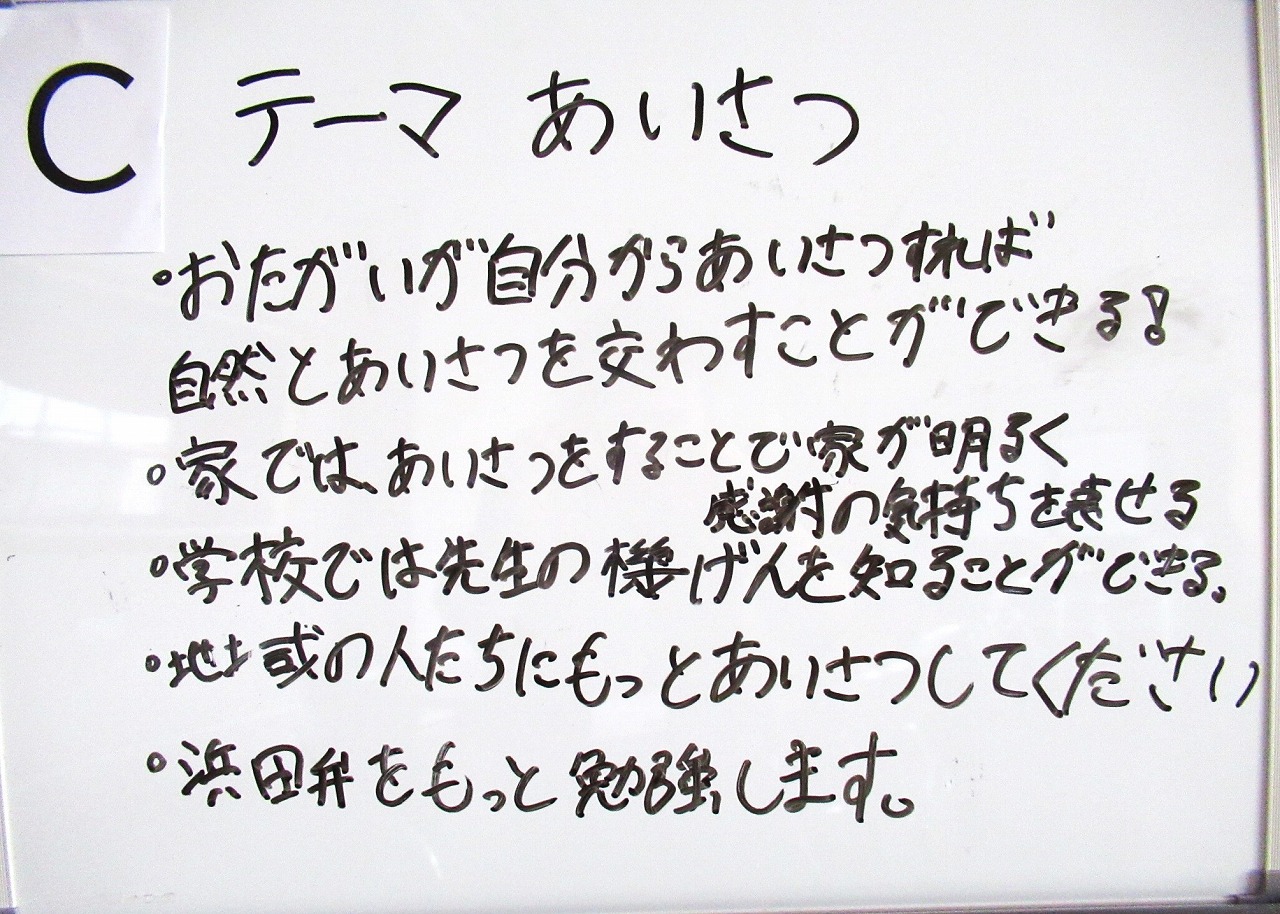 C
テーマ あいさつ
・おたがいが自分からあいさつすれば
自然とあいさつを交わすことができる!
・家では、あいさつをすることで家が明るく
感謝の気持ちを表せる
・学校では先生の機げんを知ることができる。
・地域の人たちにもっとあいさつしてください
・浜田弁をもっと勉強します。